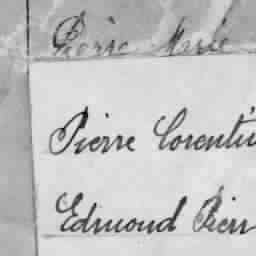 Pierre Marie
Pierre Corentin
Edmond Pierr